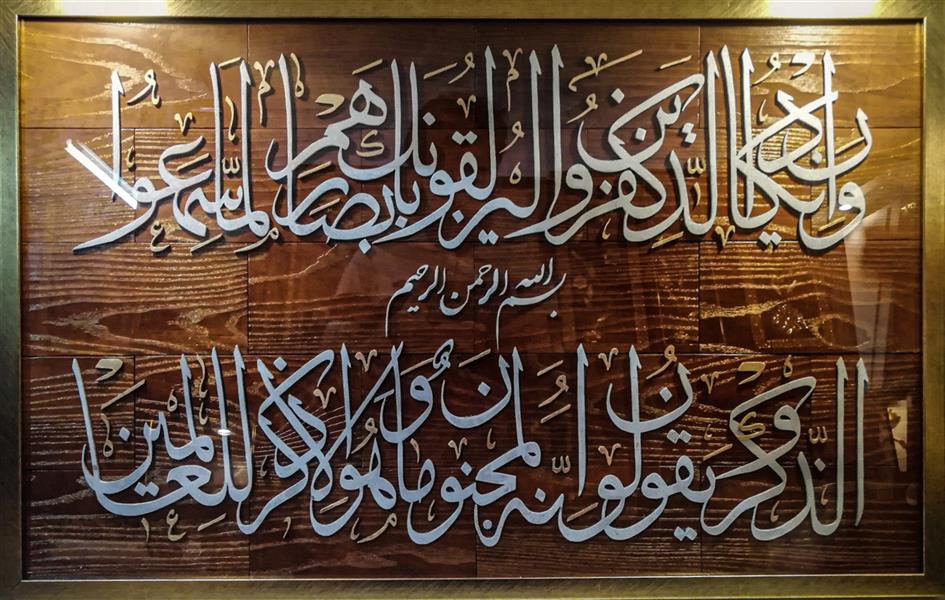 وَإِن يَكَادُ الَّذِينَ كَفَرُوا لَيُزْلِقُونَكَ بِأَبْصَارِهِمْ لَمَّا سَمِعُوا
بسم الله الرحمن الرحيم
الذِّكْرَ وَيَقُولُونَ إِنَّهُ لَمَجْنُونٌ وَمَا هُوَ إِلَّا ذِكْرٌ لِّلْعَالَمِينَ